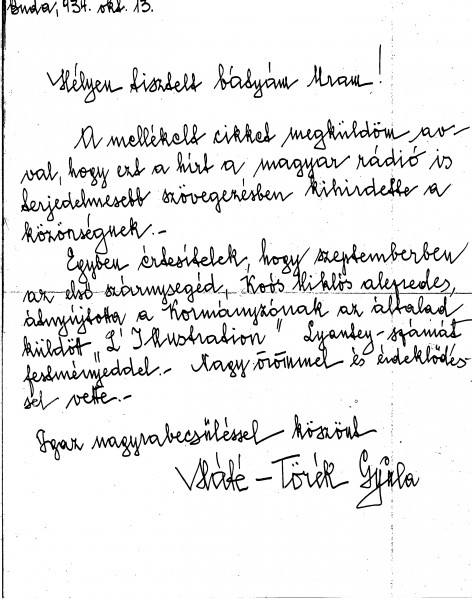 Buda, 934. okt. 13.
Mélyen tisztelt bátyám Uram!
A mellékelt cikket megküldöm av-
val, hogy ezt a hírt a magyar rádió is
terjedelmesebb szövegezésben kihirdette a
közönségnek.-
Egyben értesítelek, hogy szeptemberben
az első szárnysegéd, Koós Miklós alezredes,
átnyújtotta a Kormányzónak az általad
küldött "L'Illustration" Lyautey-számát
festményeddel.- Nagy örömmel és érdeklődés-
sel vette.-
Igaz nagyrabecsüléssel köszönt
Máté-Törék Gyula